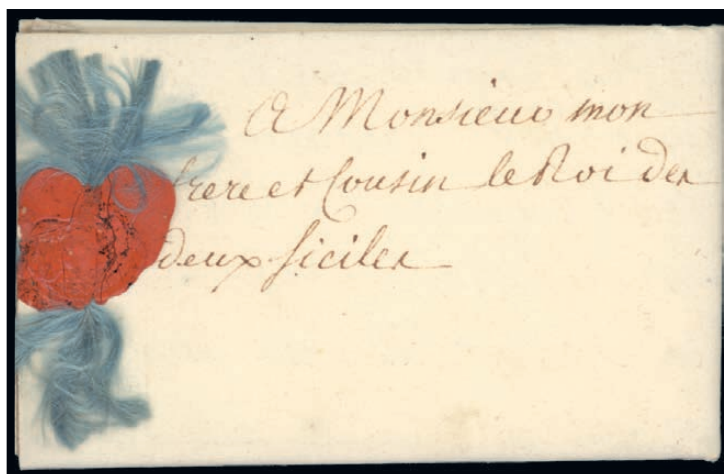 A Monsieur mon
frere et Cousin le Roi des
deux siciles